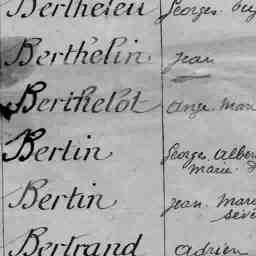 Bertheleu Georges
Berthelin Jean
Berthelot Ange. Marie
Bertin Georges. Albert
Marie
Bertin Jean. Marie
Bertrand Adrien